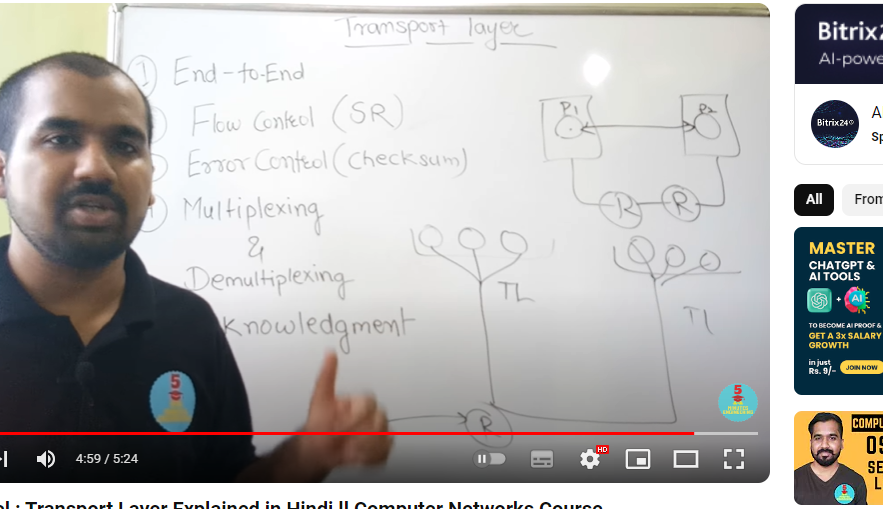 Transport layer
1 End-to-End
Flow Control (SR)
Error Control (Checksum)
Multiplexing
&
Demultiplexing
knowledgment
P1
P2
R R
TL
TL
R
5
5
MINUTES
ENGINEERING
4:59 / 5:24
HD
: Transport Layer Explained in Hindi ll Computer Networks Course
Bitrix2
AI-powe
Bitrix24
A
Sp
All
From
MASTER
CHATGPT &
AI TOOLS
+ AI
TO BECOME AI PROOF &
GET A 3x SALARY
GROWTH
in just
Rs. 9/-
JOIN NOW
COMPU
OS
SE
L